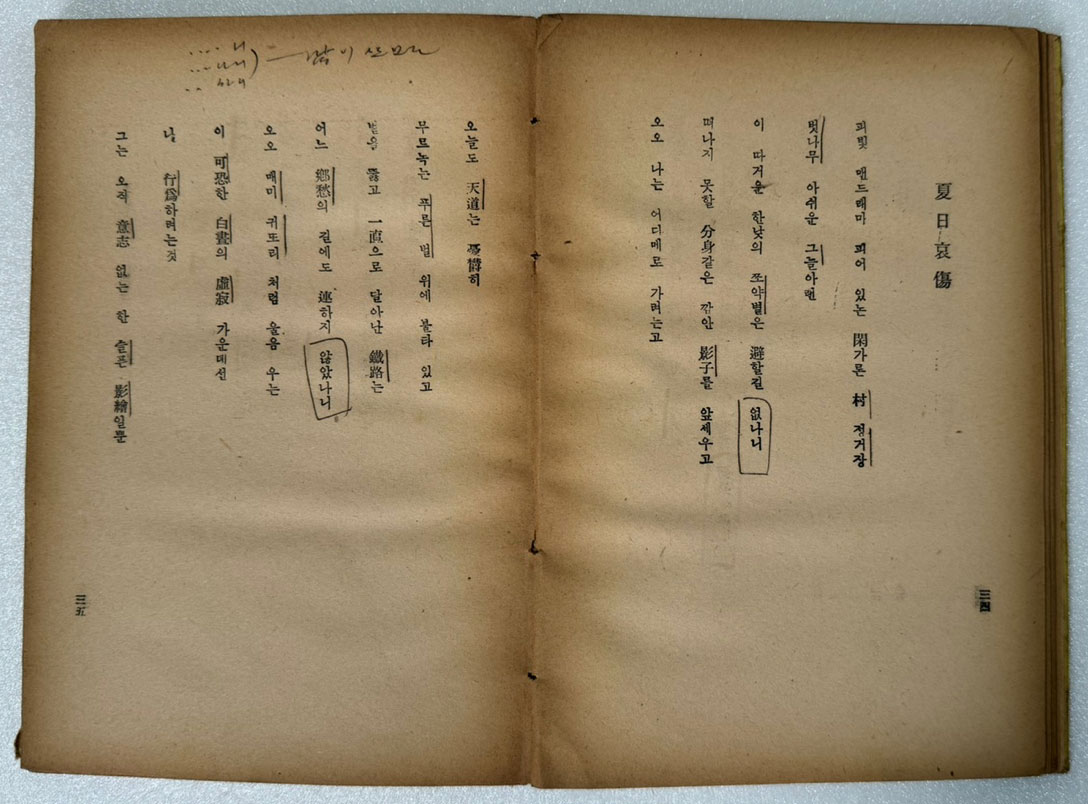 夏日哀傷
피빛 맨드래마 피어 있는 閑가론 村 정거장
벗나무 아쉬운 그늘아랜
이 따거운 한낮의 쪼약볕은 避할길 없나니
떠나지 못할 分身같은 깜안 影子를 앞세우고
오오 나는 어디메로 가려는고
三四
오늘도 天道는 鬱히
무르녹는 푸른 벌 위에 불타 있고
벌을 뚫고 一直으로 달아난 鐵路는
어느 鄕愁의 길에도 連하지 않았나니
오오 매미 귀또리 처럼 울음 우는
이 可恐한 白晝의 虛寂 가운데선
내 行爲하려는것
그는 오직 意志 없는 한 슬픈 影繪일뿐
三五
....니
...나니
..하니
많이 쓰